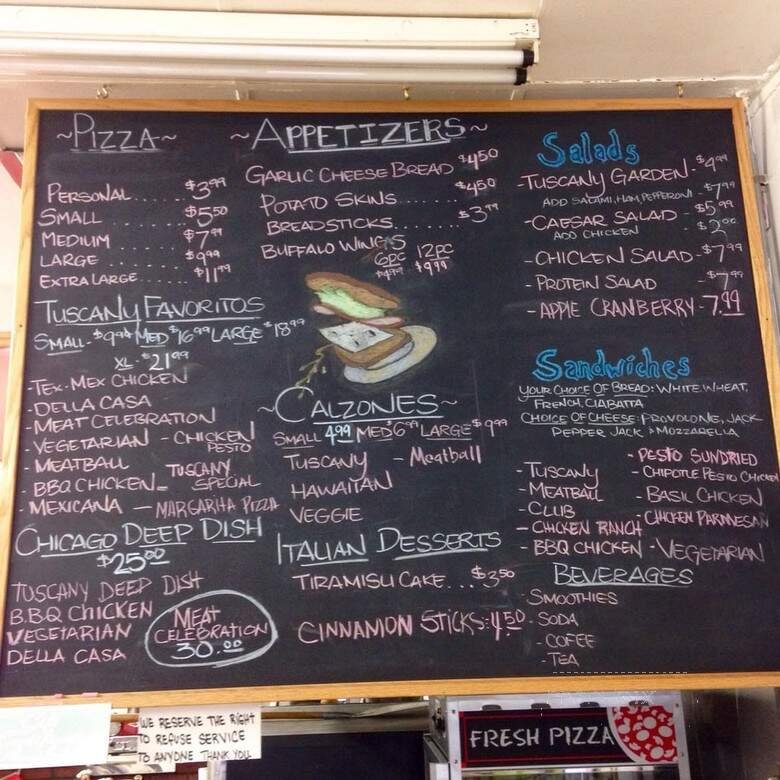 ~PIZZA~
PERSONAL..... $3.99
SMALL ....... $5.50
MEDIUM ...... $7.99
LARGE ....... $9.99
EXTRA LARGE ..... $11.99
TUSCANY FAVORITOS
SMALL- $9.99 MED $16.99 LARGE $18.99
XL- $21.99
- TEX-MEX CHICKEN
- DELLA CASA
- MEAT CELEBRATION
- VEGETARIAN - CHICKEN PESTO
- MEATBALL
- BBQ CHICKEN - TUSCANY SPECIAL
- MEXICANA - MARGARITA PIZZA
CHICAGO DEEP DISH
$25.00
TUSCANY DEEP DISH
B.B.Q CHICKEN
VEGETARIAN
DELLA CASA
MEAT
CELEBRATION
30.00
~APPETIZERS~
GARLIC CHEESE BREAD $4.50
POTATO SKINS..... $4.50
BREADSTICKS....... $3.99
BUFFALO WINGS
6PC 12PC
$4.99 $9.99
~CALZONES~
SMALL 4.99 MED $6.99 LARGE $9.99
TUSCANY - Meatball
HAWAIIAN
VEGGIE
ITALIAN DESSERTS
TIRAMISU CAKE...$3.50
CINNAMON STICKS: 4.50
Salads
- TUSCANY GARDEN - $4.99
ADD SALAMI, HAM, PEPPERONI - $7.99
- CAESAR SALAD - $5.99
ADD CHICKEN - $2.00
- CHICKEN SALAD - $7.99
- PROTEIN SALAD - $7.99
- APPLE CRANBERRY - 7.99
Sandwiches
YOUR CHOICE OF BREAD: WHITE, WHEAT,
FRENCH, CIABATTA
CHOICE OF CHEESE: PROVOLONE, JACK
PEPPER JACK & MOZZARELLA
- TUSCANY
- MEATBALL
- CLUB
- CHICKEN RANCH
- BBQ CHICKEN
- PESTO SUNDRIED
- CHIPOTLE PESTO CHICKEN
- BASIL CHICKEN
- CHICKEN PARMESAN
- VEGETARIAN
BEVERAGES
- SMOOTHIES
- SODA
- COFEE
- TEA
WE RESERVE THE RIGHT
TO REFUSE SERVICE
TO ANYONE THANK YOU
FRESH PIZZA